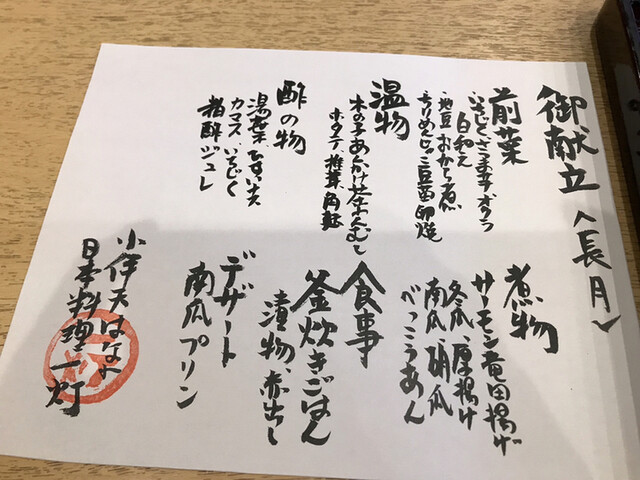 御献立〈長月〉
前菜
いちじく、さつま芋、オクラ
白和え
・地豆おから煮
ちりめんじゃこ豆苗卵焼
温物
木の子あんかけ茶碗むし
ホタテ、椎茸、角麩
酢の物
湯葉
カマス、いちじく
梅酢ジュレ
煮物
サーモン竜田揚げ
冬瓜、厚揚げ
南瓜、胡瓜
べっこうあん
食事
釜炊きごはん
漬物、赤出し
デザート
南瓜プリン
小伴天はなれ
日本料理一灯